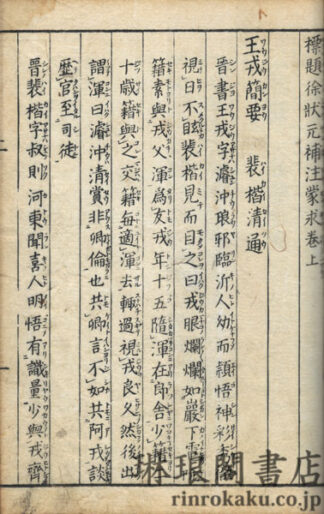 標題徐状元補注蒙求巻上
王戎簡要 裴楷清通
晉書王戎字濬沖琅邪臨沂人幼而頴悟神彩秀
視日不眩裴楷見而目之曰戎眼爛爛如巌下電
籍素與戎父渾爲友戎年十五隨渾在郎舎少籍
十歳籍與之交籍毎適渾去輙過視戎良久然後出
謂渾曰濬沖清賞非卿倫也共卿言不如共阿戎談
歴官至司徒
晉裴楷字叔則河東聞喜人明悟有識量少與戎齊
琳琅閣書店
rinrokaku.co.jp